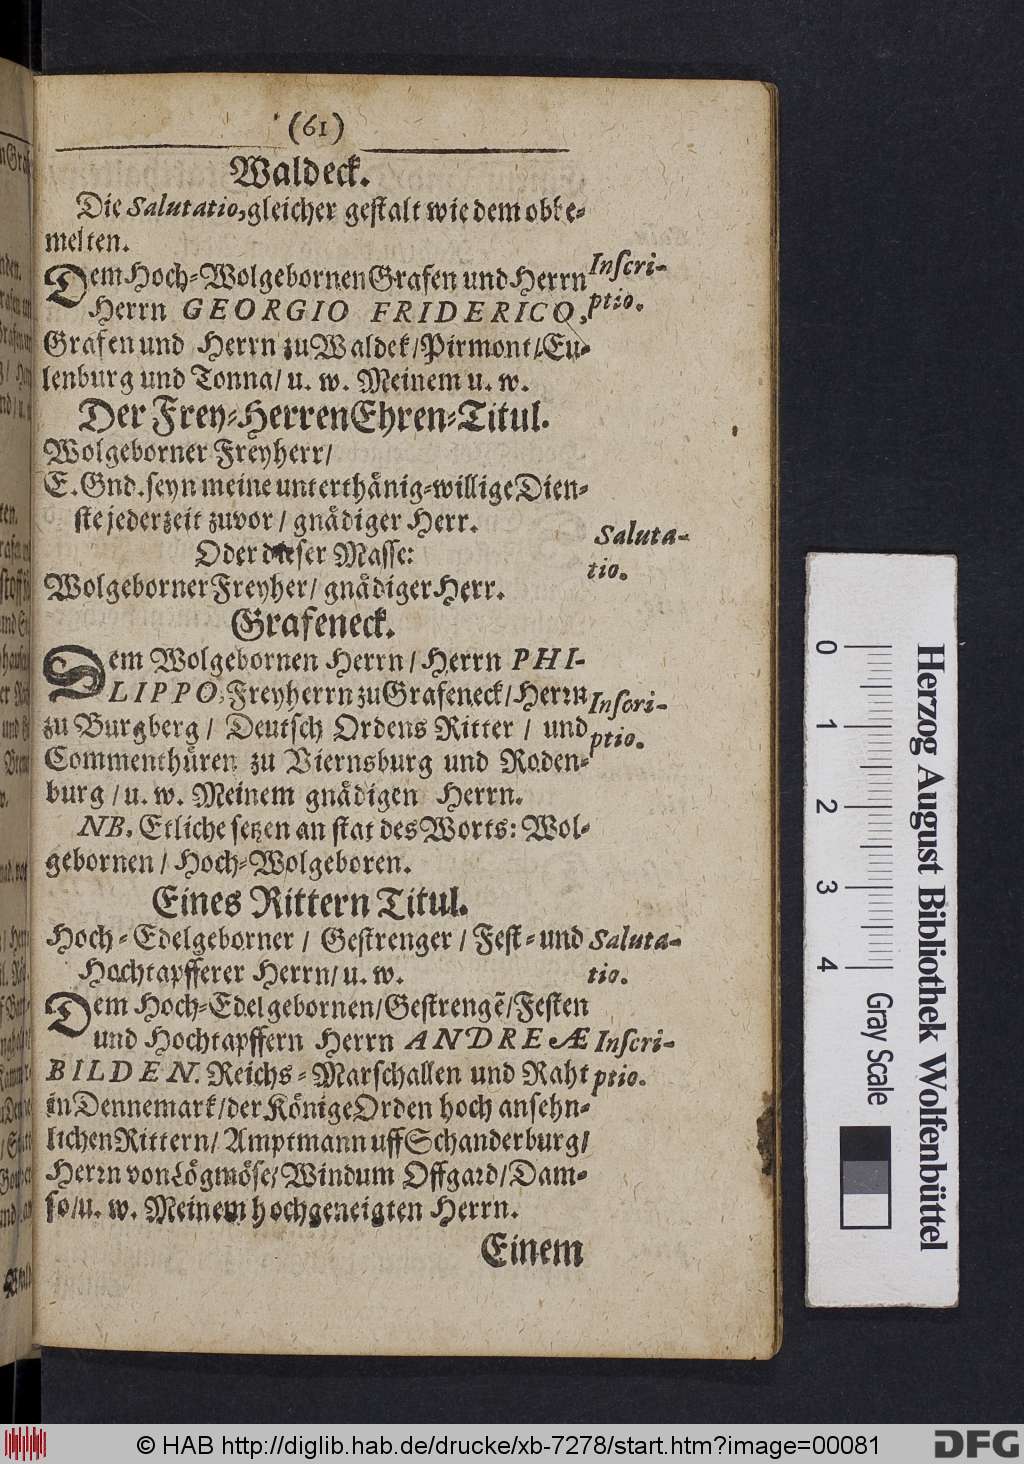 (61)
Waldeck.
Die Salutatio, gleicher gestalt wie dem obbe-
melten.
Dem Hoch-Wolgebornen Grafen und Herrn Inscri-
Herrn GEORGIO FRIDERICO, ptio.
Grafen und Herrn zu Waldek/Pirmont/Eu-
lenburg und Tonna/ u. w. Meinem u. w.
Der Frey-Herren Ehren-Titul.
Wolgeborner Freyherr/
E. Gnd. seyn meine unterthånig-willige Dien-
ste jederzeit zuvor / gnådiger Herr.
Saluta-
Oder dieser Masse:
tio.
Wolgeborner Freyher/ gnådiger Herr.
Grafeneck.
Dem Wolgebornen Herrn/ Herrn PHI-
LIPPO, Freyherrn zu Grafeneck/ Herrn Inscri-
zu Burgberg / Deutsch Ordens Ritter / und ptio.
Commenthůren zu Viernsburg und Roden-
burg / u. w. Meinem gnådigen Herrn.
NB. Etliche setzen an stat des Worts: Wol-
gebornen / Hoch-Wolgeboren.
Eines Rittern Titul.
Hoch-Edelgeborner / Gestrenger / Fest- und Saluta-
Hochtapfferer Herrn/ u. w. tio.
Dem Hoch-Edelgebornen/Gestrengẽ/Festen
und Hochtapffern Herrn ANDREÆ Inscri-
BILDEN. Reichs-Marschallen und Raht ptio.
in Dennemark/der Könige Orden hoch ansehn-
lichen Rittern/ Amptmann uff Schanderburg/
Herrn von Lögmöse/ Windum Offgard/Dam-
so/u. w. Meinem hochgeneigten Herrn.
Einem
Herzog August Bibliothek Wolfenbüttel
0 1 2 3 4
Gray Scale
© HAB http://diglib.hab.de/drucke/xb-7278/start.htm?image=00081
DFG